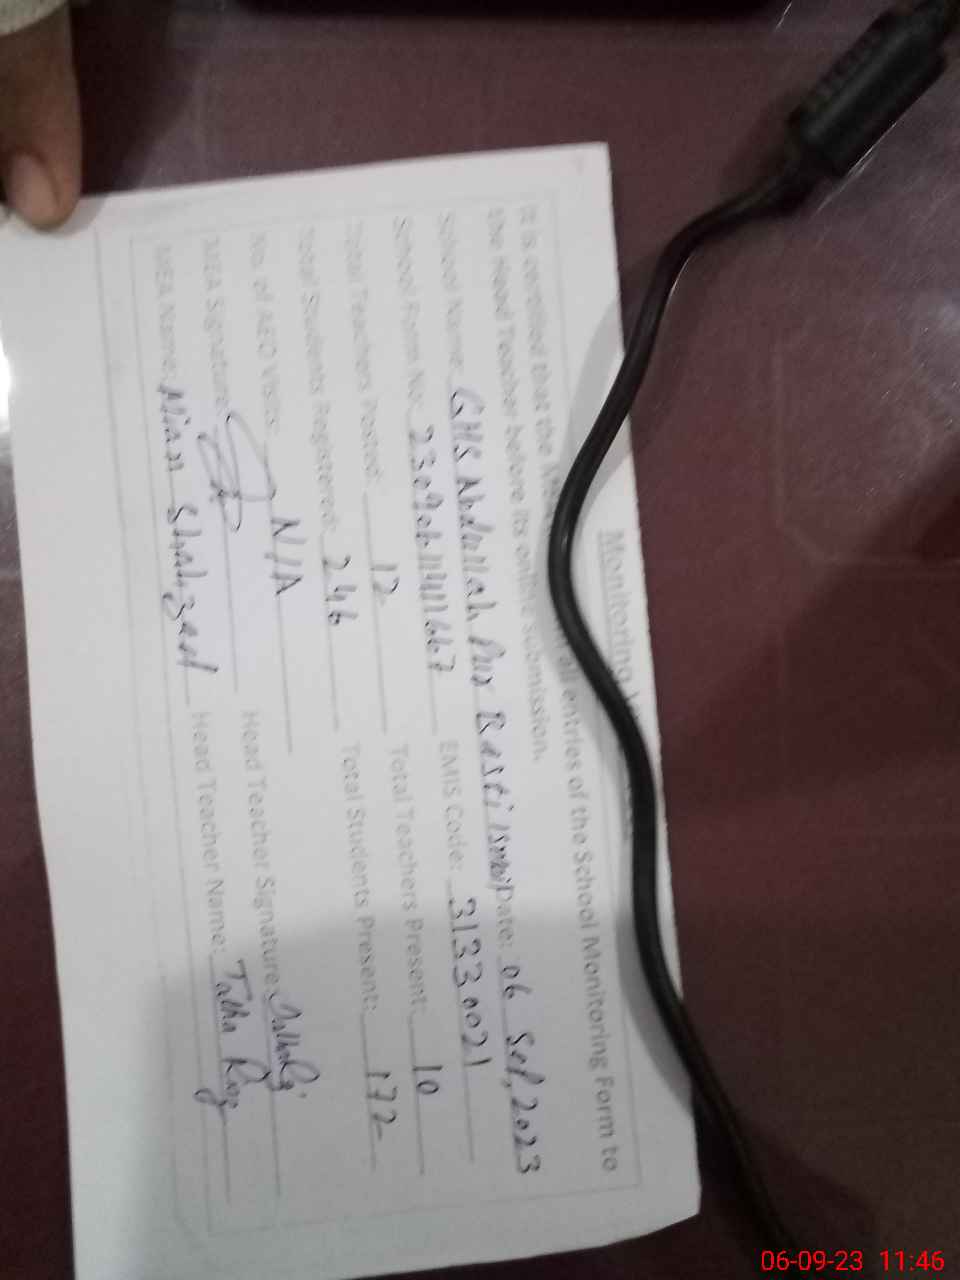 Monitoring
It is certified that the MEA all entries of the School Monitoring Form to
the Head Teacher before its online submission.
School Name: GHS Abdullah Pur Basti Date: 06 Sep, 2023
School Form No: EMIS Code: 31330021
Total Teachers Posted: 12 Total Teachers Present: 10
Total Students Registered: 246 Total Students Present: 172
No. of AEO Visits: N/A
MEA Signature: Head Teacher Signature:
MEA Name: Mian Shahzad Head Teacher Name: Talha
06-09-23 11:46